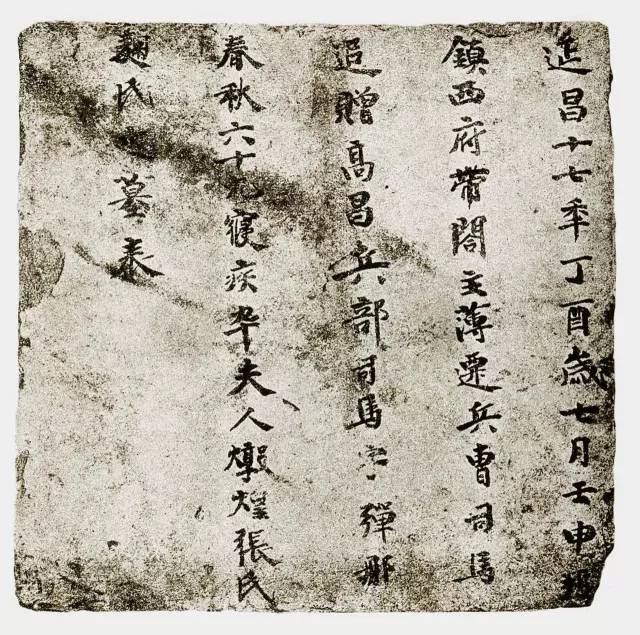 延昌十七年丁酉歲七月壬申朔
鎮西府帶閣主薄遷兵曹司馬
追贈高昌兵部司馬字彈那
春秋六十九寢疾卒夫人燉煌張氏
麴氏墓表